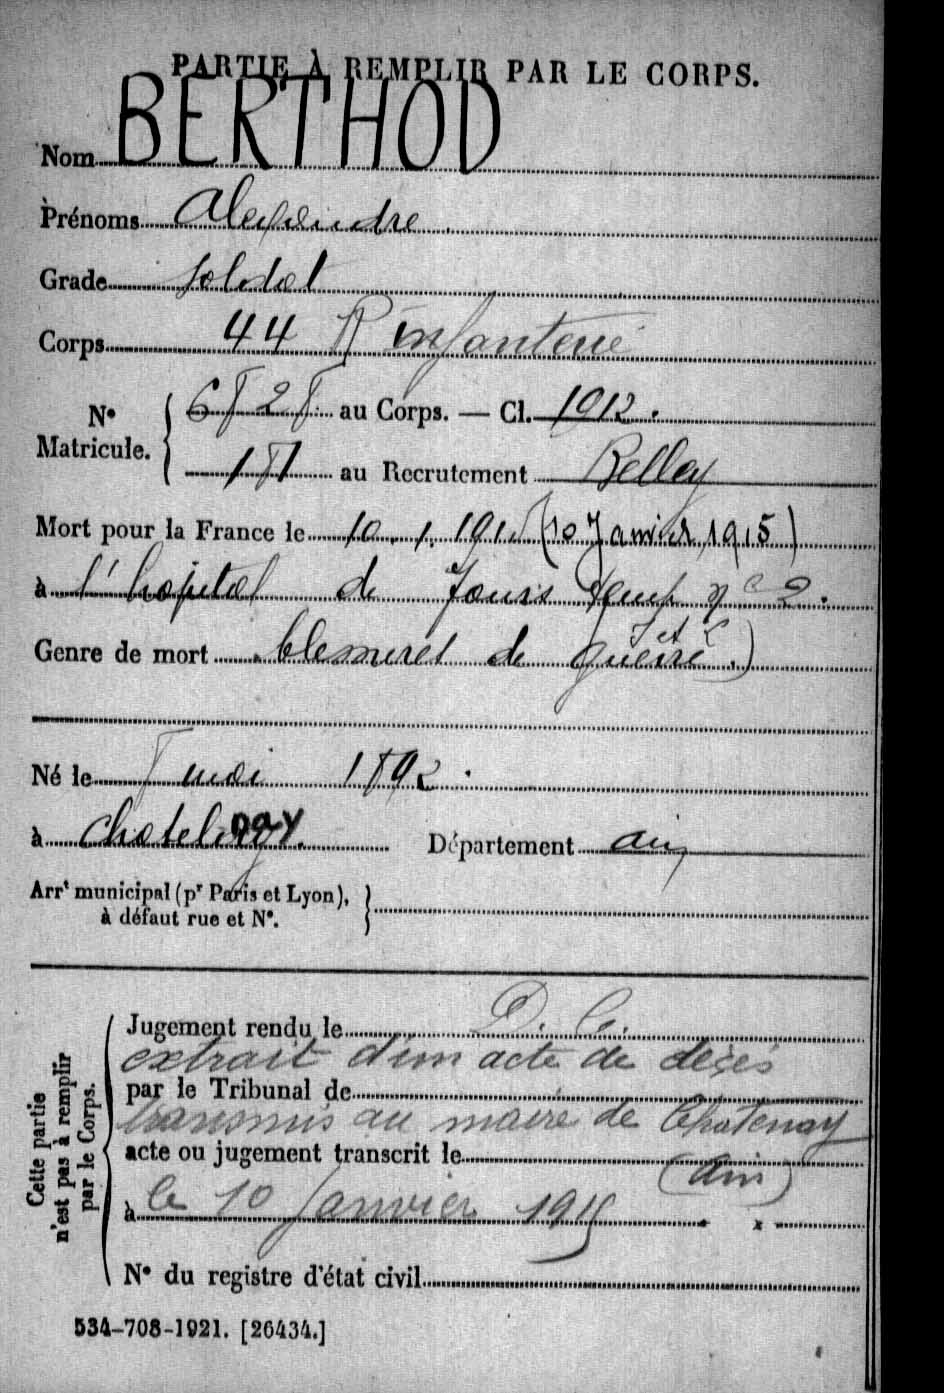 PARTIE À REMPLIR PAR LE CORPS.
Nom BERTHOD
Prénoms Alexandre
Grade soldat
Corps 44 R infanterie
N° Matricule. { 6828 au Corps. — Cl. 1912.
181 au Recrutement Belley
Mort pour la France le 10. 1. 191 (10 Janvier 1915)
à l'hopital de temp n° 2.
Genre de mort blessures de guerre. S et L)
Né le 8 mai 1892.
à chatelenay. Département ain
Arrt municipal (pr Paris et Lyon), à défaut rue et N°. }
Cette partie n'est pas à remplir par le Corps.
Jugement rendu le D. C.
extrait d'un acte de décès
par le Tribunal de
transmis au maire de Chatenay
acte ou jugement transcrit le
(Ain)
à le 10 Janvier 1915
N° du registre d'état civil
534-708-1921. [26434.]